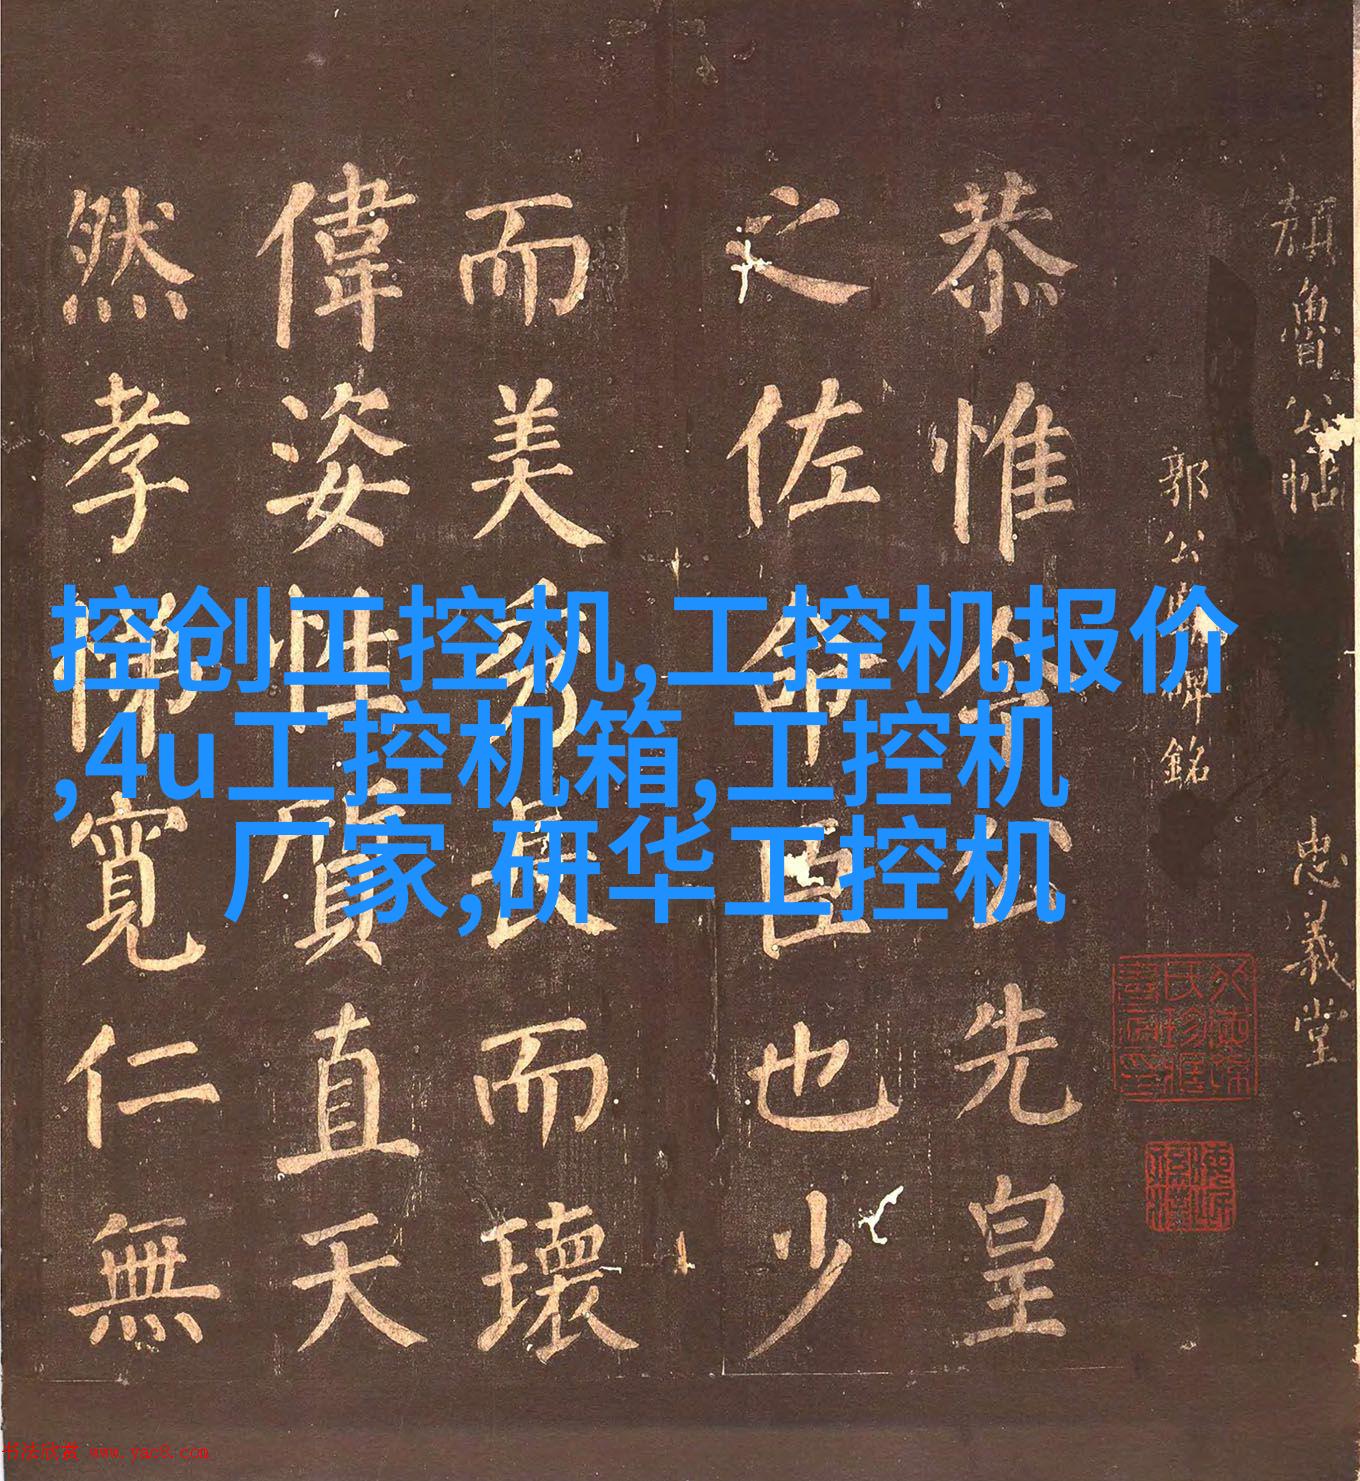 顏魯公帖 忠義堂
郭公廟碑銘
恭惟公先皇
之佐命臣也少
而美秀長而瓌
偉姿性質直天
然孝悌寬仁無
控创工控机,工控机报价
,4u工控机箱,工控机
厂家,研华工控机
书法欣赏 www.yac8.com